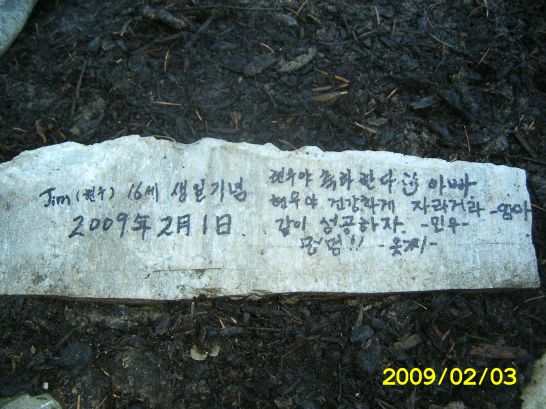 Jim (현우) 16세 생일기념
2009年 2月 1日
현우야 축하 한다 아빠
현우야 건강하게 자라거라 -엄마
같이 성공하자. -민우-
멍멍!! -웃찌-
2009/02/03